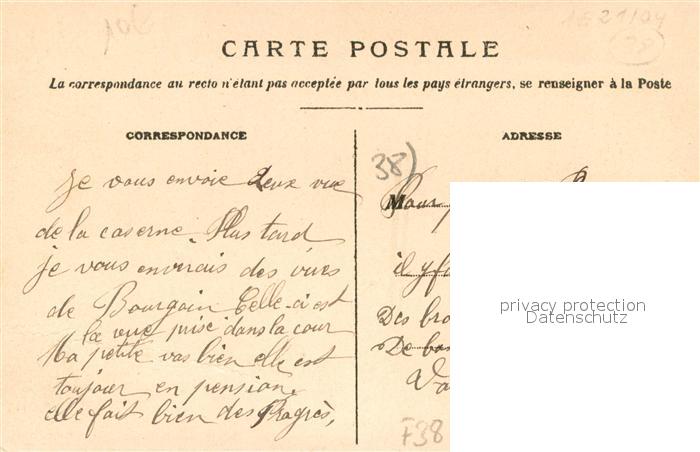 CARTE POSTALE
La correspondance au recto n'étant pas acceptée par tous les pays étrangers, se renseigner à la Poste
CORRESPONDANCE
je vous envoie deux vue
de la caserne. Plus tard
je vous enverais des vues
de Bourgoin Celle-ci est
la vue prise dans la cour
Ma petite vas bien elle est
toujour en pension,
elle fait bien des Progrès,
ADRESSE
38)
il y
Des
De
F38
privacy protection
Datenschutz